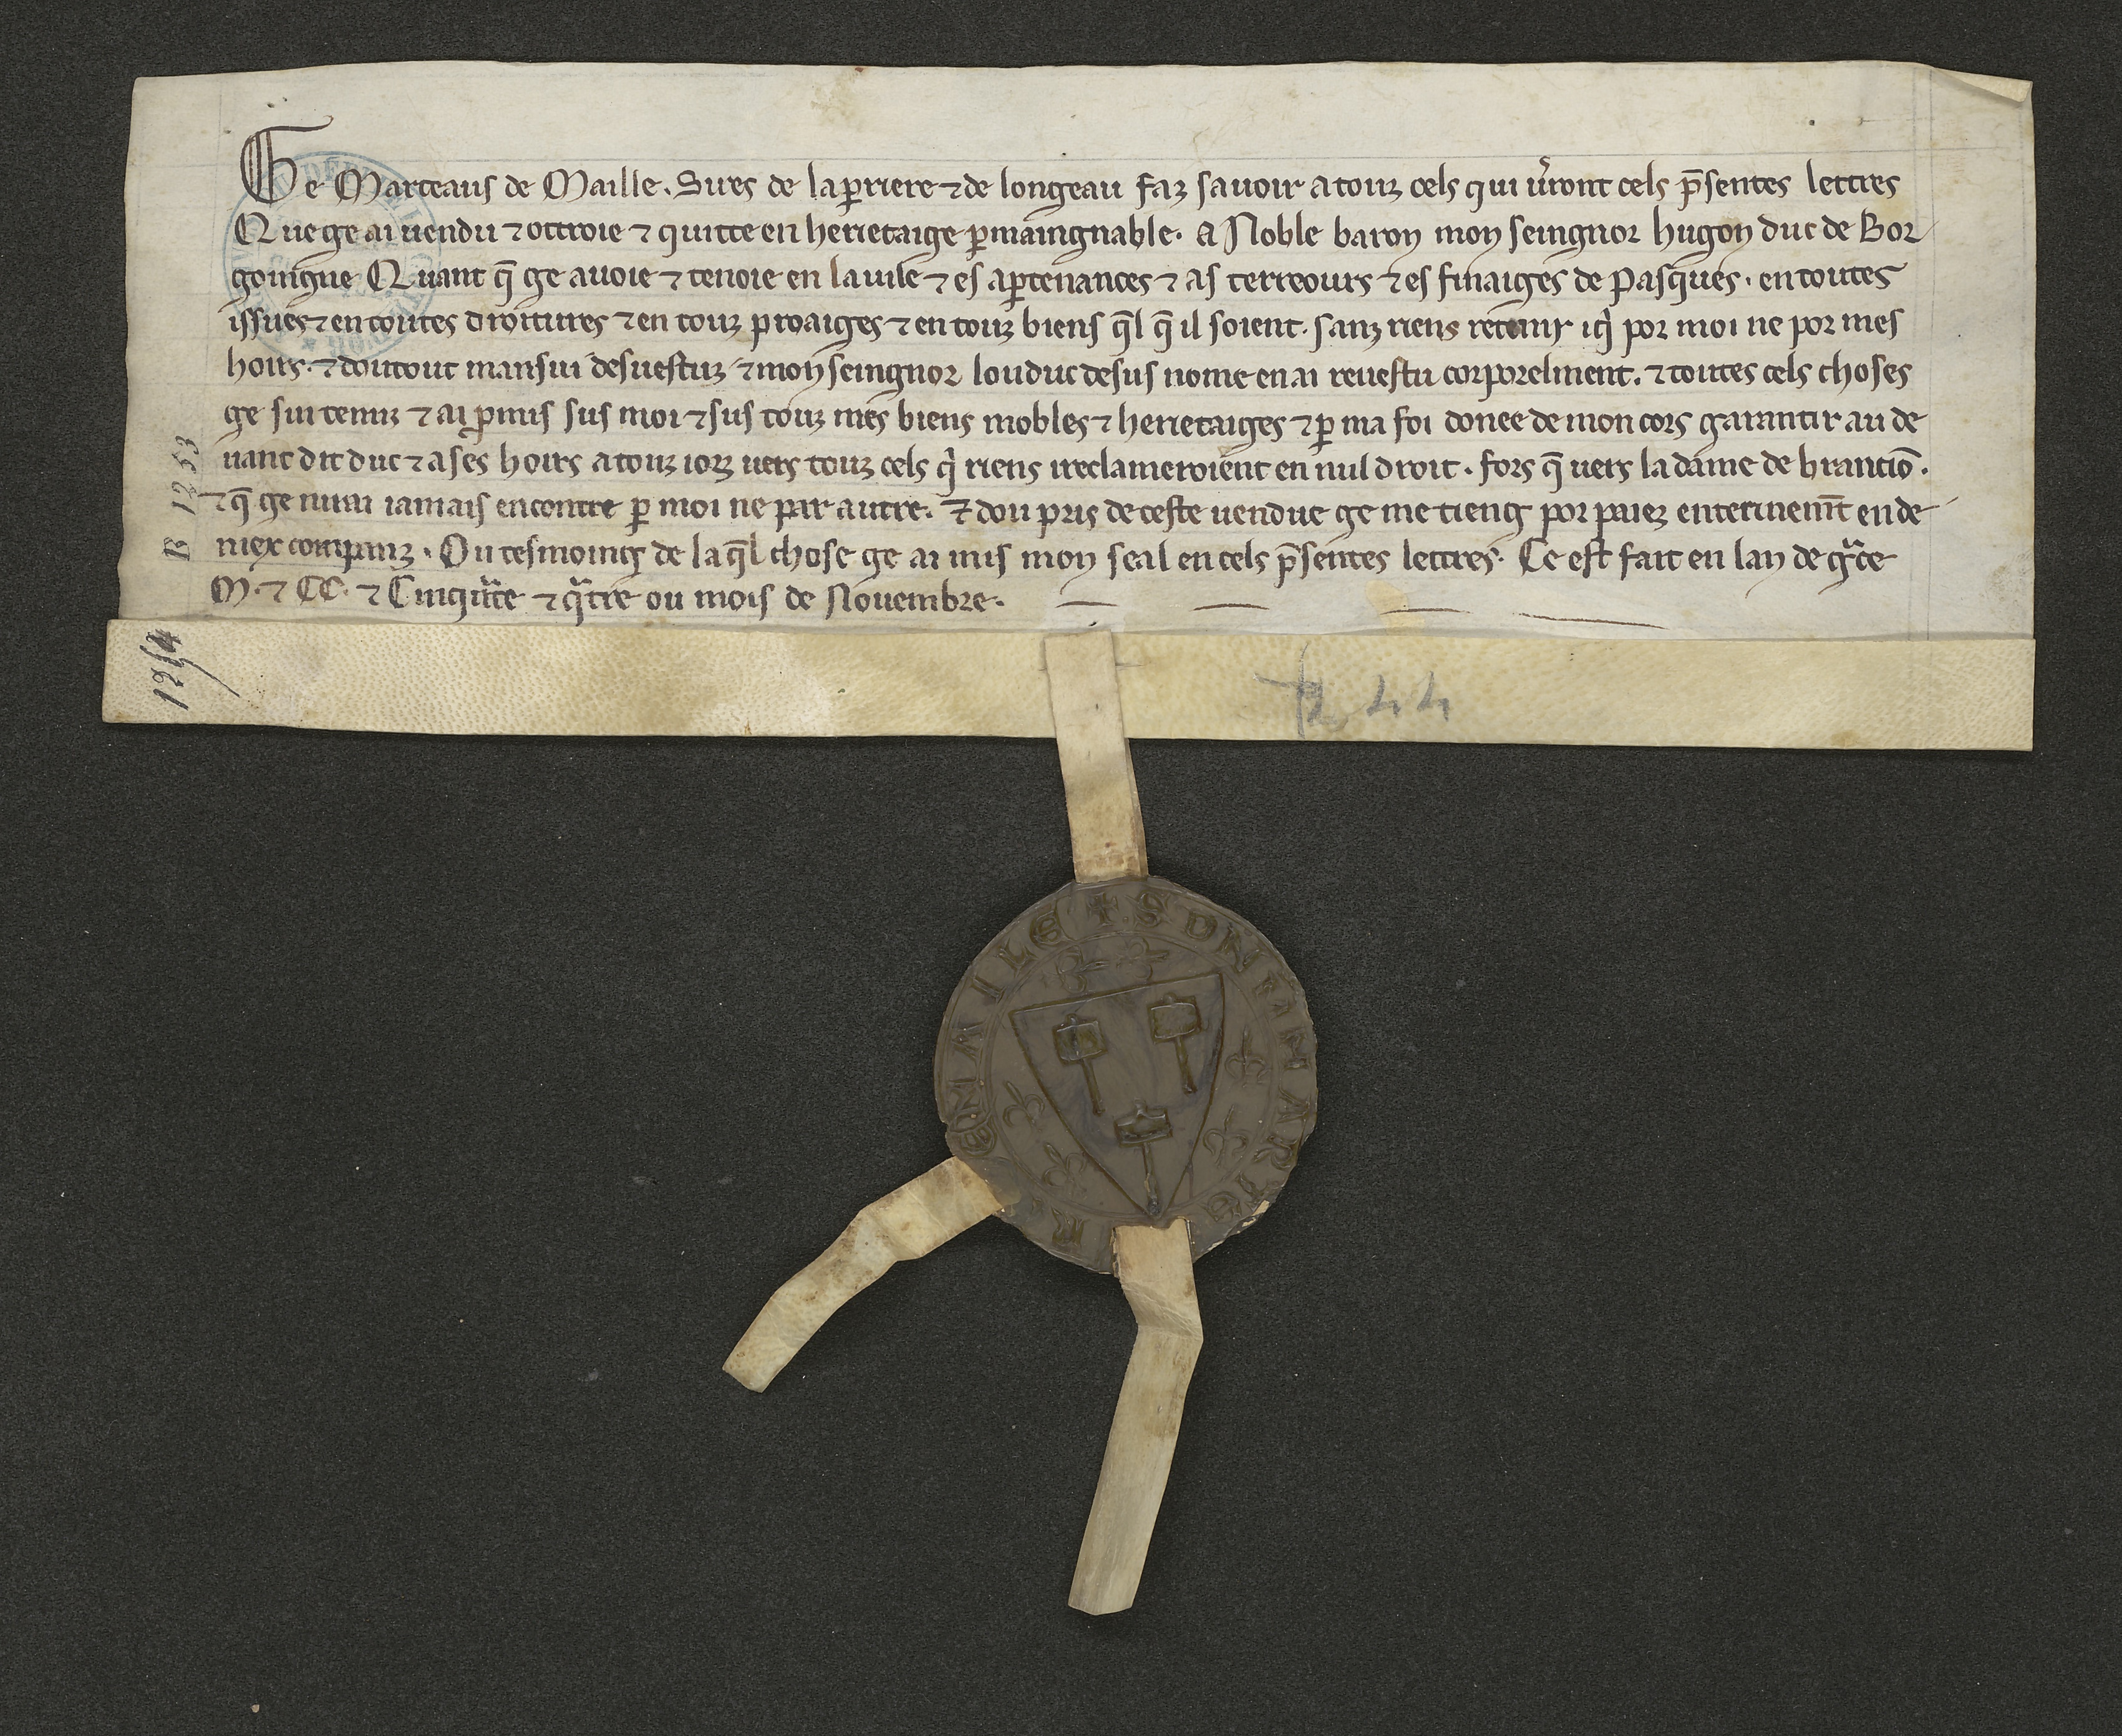 Ge Marteaus de Maille. Sires de la ꝑriere ⁊ de longeau faz sauoir a touz cels qui u͛ront cels p̄sentes lettres
Que ge ai uendu ⁊ ottroie ⁊ quitte en herietaige ꝑmaingnable. A Noble baron mon seingnor hugon duc de Bor
goingne Quant q̄ ge auoie ⁊ tenoie en la uile ⁊ es aꝑtenances ⁊ as terreours ⁊ es finaiges de Pasques. en toutes
issues ⁊ en toutes droitures ⁊ en touz proaiges ⁊ en touz biens q̄l q̄ il soient. sanz riens retenir iqͥ por moi ne por mes
hoirs. ⁊ dou tout man sui desuestuz ⁊ mon seingnor lou duc desus nome en ai reuestu corporelment. ⁊ toutes cels choses
ge sui tenuz ⁊ ai ꝓmis sus moi ⁊ sus touz mes biens mobles ⁊ herietaiges ⁊ ꝑ ma foi donee de mon cors garantir au de
uant dit duc ⁊ a ses hoirs a touz iorz uers touz cels qͥ riens i reclameroient en nul droit. fors q̄ uers la dame de brancio̅.
⁊ q̄ ge nirai iamais encontre ꝑ moi ne par autre. ⁊ dou pris de ceste uendue ge me tieng por paiez enterinemēt en de
niex contanz. Ou tesmoing de la q̄l chose ge ai mis mon seal en cels p̄sentes lettres. Ce est fait en lan de gᵃce
M. ⁊ CC. ⁊ Cinquᵃte ⁊ qᵃtre ou mois de Nouembre.
B 1253
1254
244
✝ S DNI MARTE
R
E MAILE